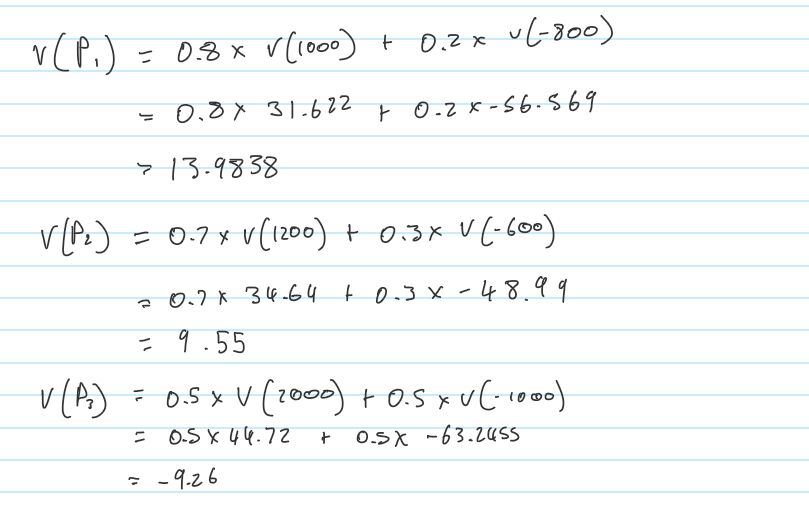 V(P₁) = 0.8 × V(1000) + 0.2 × V(-800)
= 0.8 × 31.622 + 0.2 × -56.569
= 13.9838
V(P₂) = 0.7 × V(1200) + 0.3 × V(-600)
= 0.7 × 34.64 + 0.3 × -48.99
= 9.55
V(P₃) = 0.5 × V(2000) + 0.5 × V(-1000)
= 0.5 × 44.72 + 0.5 × -63.2455
= -9.26